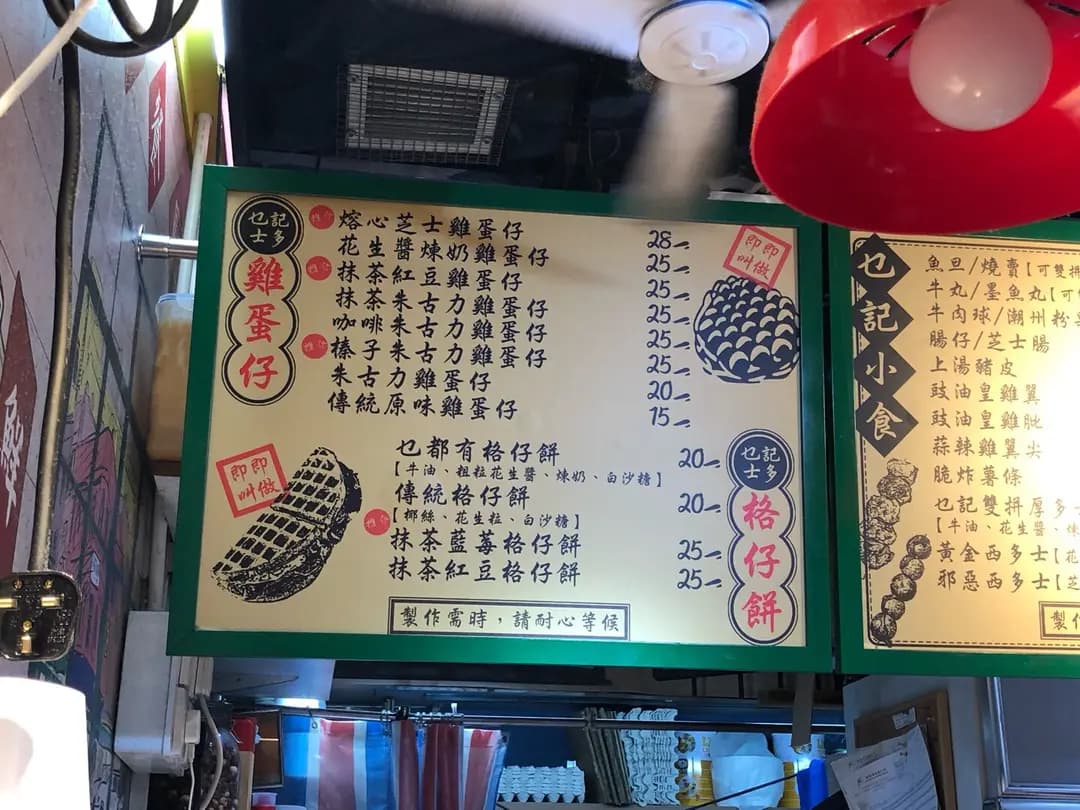 乜記士多
雞蛋仔
推介 熔心芝士雞蛋仔 28-
花生醬煉奶雞蛋仔 25-
推介 抹茶紅豆雞蛋仔 25-
抹茶朱古力雞蛋仔 25-
咖啡朱古力雞蛋仔 25-
推介 榛子朱古力雞蛋仔 25-
朱古力雞蛋仔 20-
傳統原味雞蛋仔 15-
即叫即做
即叫即做
乜都有格仔餅 20-
【牛油、粗粒花生醬、煉奶、白沙糖】
傳統格仔餅 20-
推介 【椰絲、花生粒、白沙糖】
抹茶藍莓格仔餅 25-
抹茶紅豆格仔餅 25-
製作需時，請耐心等候
乜記士多
格仔餅
乜記小食
魚旦/燒賣【可雙拼
牛丸/墨魚丸【可
牛肉球/潮州粉
腸仔/芝士腸
上湯豬皮
豉油皇雞翼
豉油皇雞肶
蒜辣雞翼尖
脆炸薯條
乜記雙拼厚多
【牛油、花生醬、煉
黃金西多士【花
邪惡西多士【芝
製作